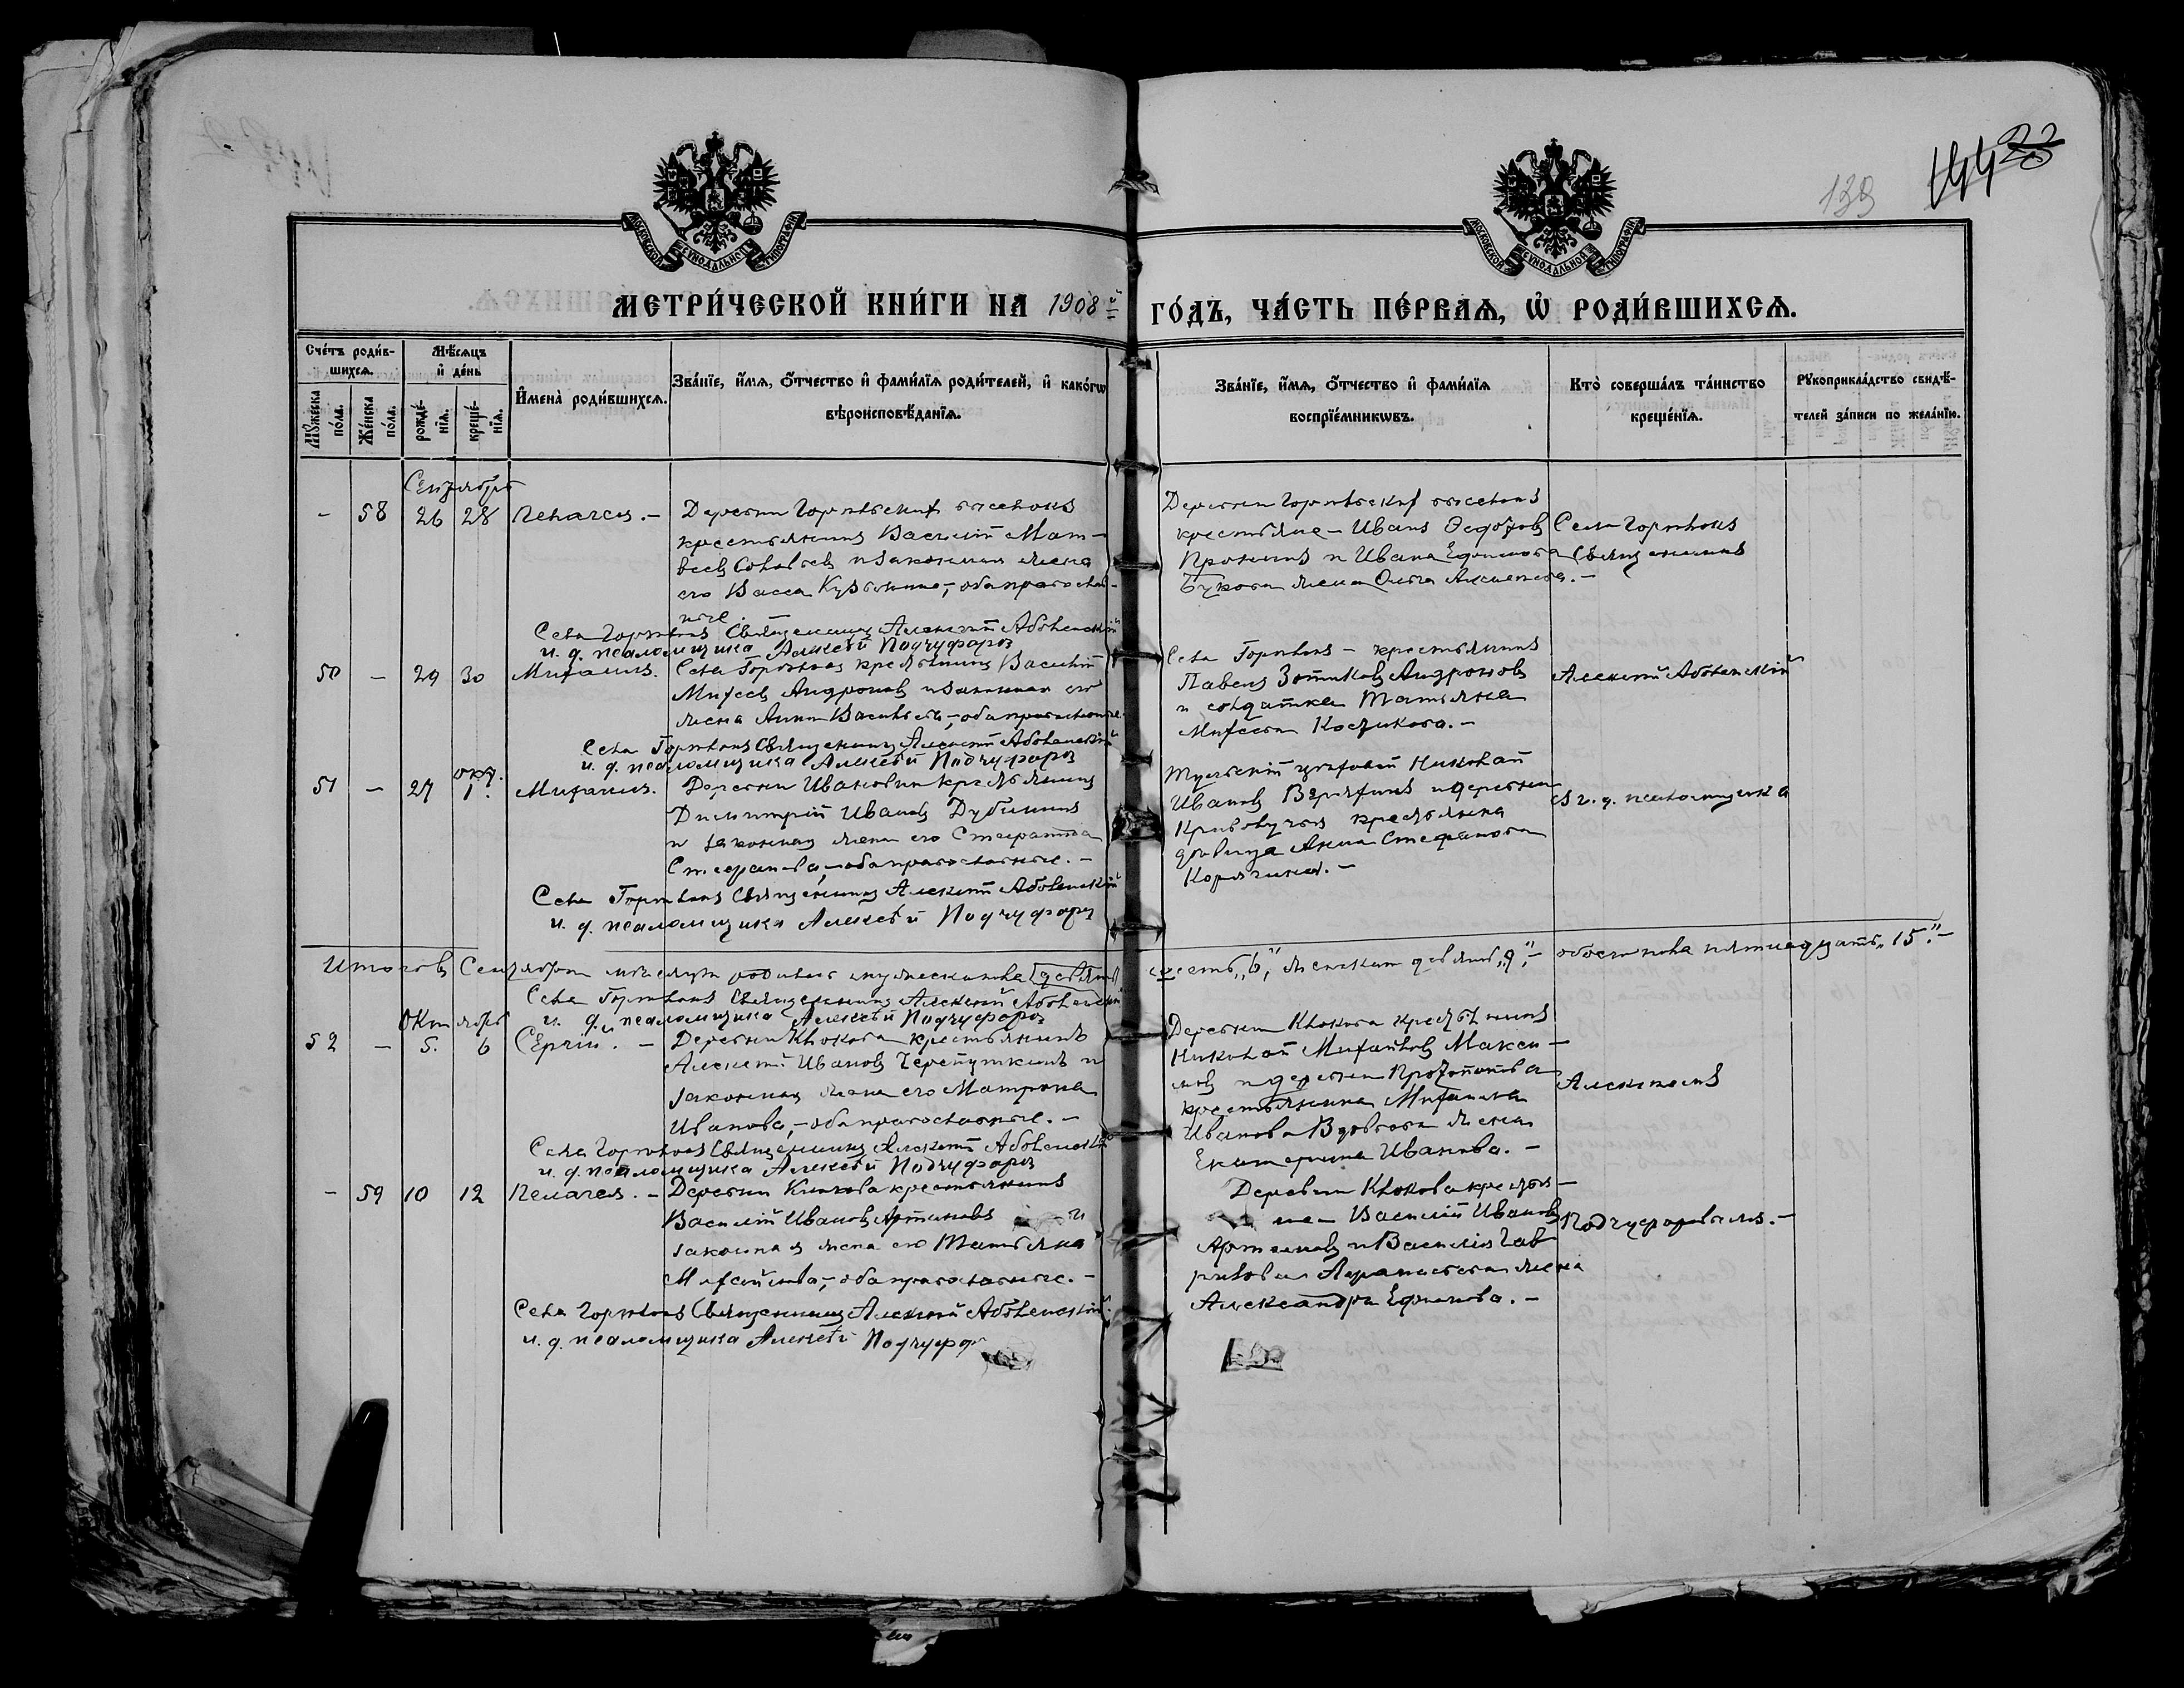 139
144
22
МОСКОВСКОЙ СѴНОДАЛЬНОЙ ТИПОГРАФІИ
МОСКОВСКОЙ СѴНОДАЛЬНОЙ ТИПОГРАФІИ
МЕТРИ́ЧЕСКОЙ КНИ́ГИ НА 1908й ГО́ДЪ, ЧА́СТЬ ПЕ́РВАѦ, Ѡ҆ РОДИ́ВШИХСѦ.
Сче́тъ роди́в-
шихсѧ.
Мꙋ́жеска по́ла.
Же́нска по́ла.
Мѣ́сѧцъ
и҆ де́нь
рожде́-
нїѧ.
креще́-
нїѧ.
И҆мена̀ роди́вшихсѧ.
Зва́нїе, и҆́мѧ, ѻ҆́тчество и҆ фами́лїѧ роди́телей, и҆ како́гѡ
вѣроисповѣ́данїѧ.
Зва́нїе, и҆́мѧ, ѻ҆́тчество и҆ фами́лїѧ
воспрїе́мникѡвъ.
Кто̀ соверша́лъ та́инство
креще́нїѧ.
Рꙋкоприкла́дство свидѣ́-
телей за́писи по жела́нїю.
Сентябрь
- 58 26 28 Пелагея. -
Деревни Горѣльскихъ выселокъ
крестьянинъ Василій Мат-
веевъ Соловьевъ и законная жена
его Васса Кузьмина, - оба православ-
ные.
Деревни Горѣльскихъ выселокъ
крестьяне - Иванъ Ѳедотовъ
Пронинъ и Ивана Ефимова
жена Ольга Алексеева. -
Села Горѣлокъ
Священникъ
Села Горѣлокъ Священникъ Алексѣй Аболенскій
и. д. псаломщика Алексѣй Подчуфаровъ
50 - 29 30 Михаилъ.
Села Горѣлокъ крестьянинъ Василій
Михеевъ Андроновъ и законная его
жена Анна Васильева, - оба православные.
Села Горѣлокъ - крестьянинъ
Павелъ Зотиковъ Андроновъ
и солдатка Татьяна
Михеева -
Алексѣй Аболенскій
Села Горѣлокъ Священникъ Алексѣй Аболенскій
и. д. псаломщика Алексѣй Подчуфаровъ
окт.
51 - 27 1. Михаилъ.
Деревни Ивановки крестьянинъ
Димитрій Ивановъ Дубининъ
и законная жена его
Стефанова, - оба православные. -
Тульскій цеховой Николай
Ивановъ и деревни
крестьянка
девица Анна Стефанова
Корягина. -
и. д. псаломщика
Села Горѣлокъ Священникъ Алексѣй Аболенскій
и. д. псаломщика Алексѣй Подчуфаровъ
Итого въ Сентябрѣ мѣсяцѣ родилось мужеска пола
шесть „6", женскаго девять „9", - обоего пола пятнадцать „15". -
Села Горѣлокъ Священникъ Алексѣй Аболенскій
и. д. псаломщика Алексѣй Подчуфаровъ
Октябрь
52 - 5. 6 Сергій. -
Деревни Клокова крестьянинъ
Алексѣй Ивановъ и
законная жена его Матрона
Иванова, - оба православные. -
Деревни Клокова крестьянинъ
Николай Михайловъ Макси-
мовъ и деревни
крестьянина Михаила
Иванова жена
Екатерина Иванова. -
Алексѣемъ
Села Горѣлокъ Священникъ Алексѣй Аболенскій
и. д. псаломщика Алексѣй Подчуфаровъ
- 59 10 12 Пелагея. -
Деревни Клокова крестьянинъ
Василій Ивановъ Артемовъ и
законная жена его Татьяна
- оба православные. -
Деревни Клокова крестья-
не - Василій Ивановъ
Артемовъ и Василія Гав-
рилова жена
Александра Ефимова. -
Подчуфаровымъ. -
Села Горѣлокъ Священникъ Алексѣй Аболенскій
и. д. псаломщика Алексѣй